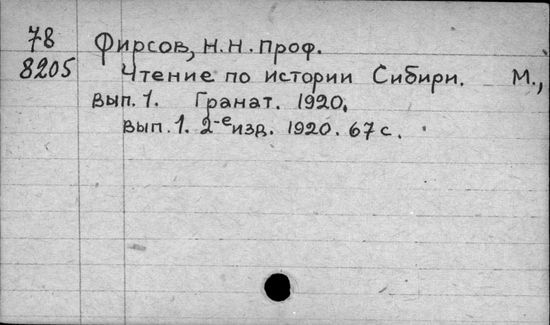 78 Фирсов, Н.Н. Проф.
8205 Чтение по истории Сибири. М.,
вып. 1. Гранат. 1920.
вып. 1. 2-е изд. 1920. 67 с.